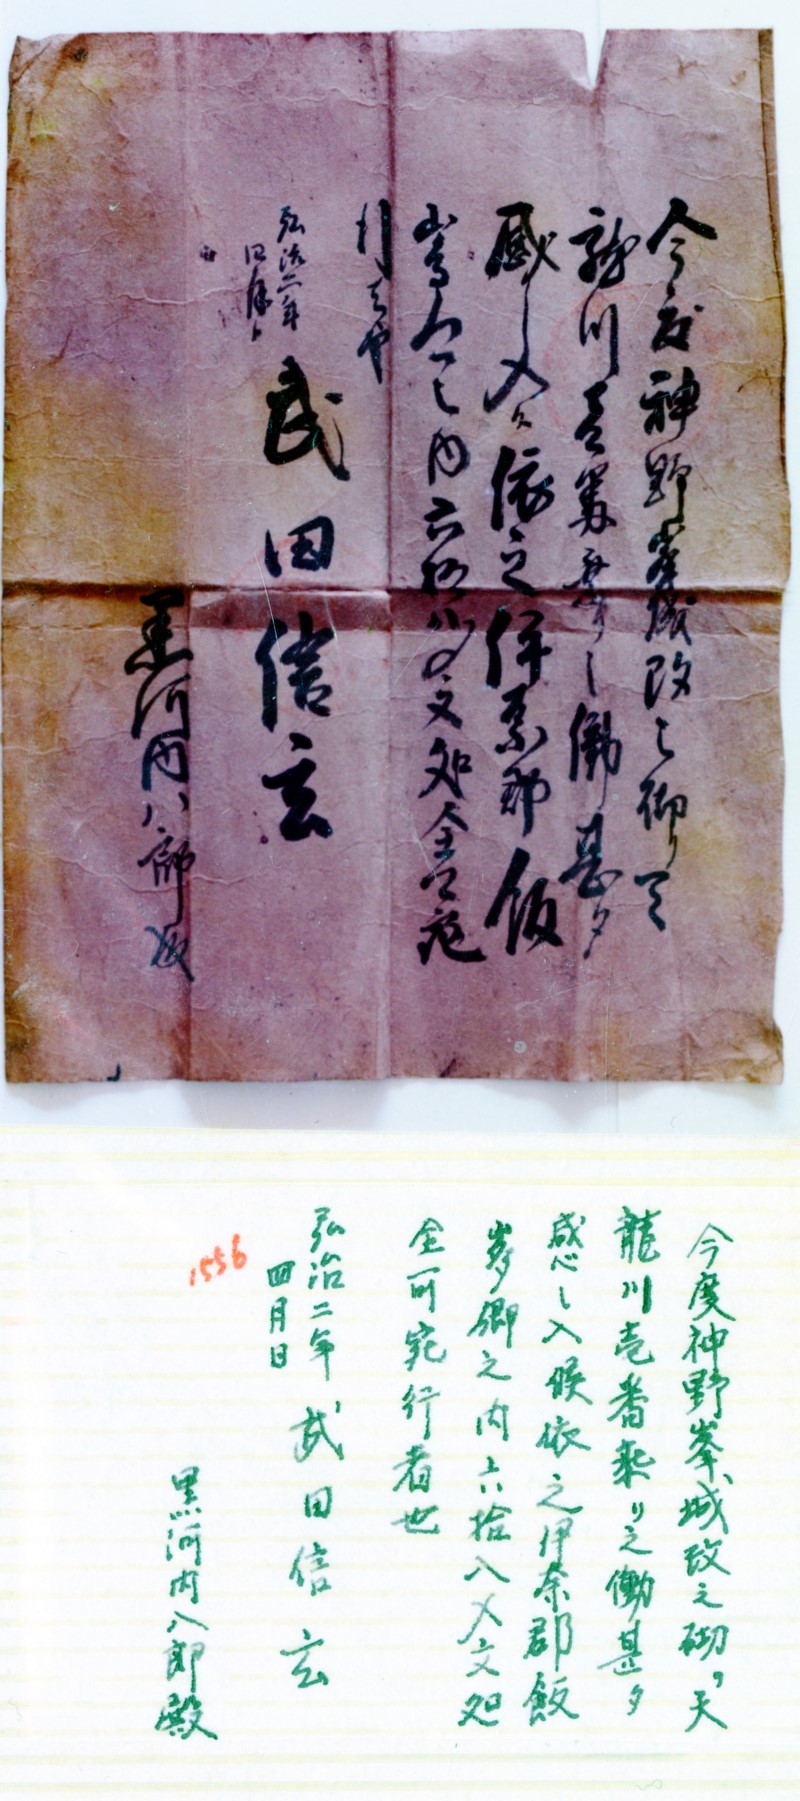 今度神野峯城攻之砌り天
龍川壱番乗り之働甚タ
感し入候依之伊奈郡飯
嶌郷之内六拾八〆文処全可宛
行者也
弘治二年
四月日
武田信玄
黒河内八郎殿
今度神野峯城攻之砌り天
龍川壱番乗り之働甚タ
感し入候依之伊奈郡飯
嶌郷之内六拾八〆文処
全可宛行者也
弘治二年 武田信玄
四月日
1556
黒河内八郎殿